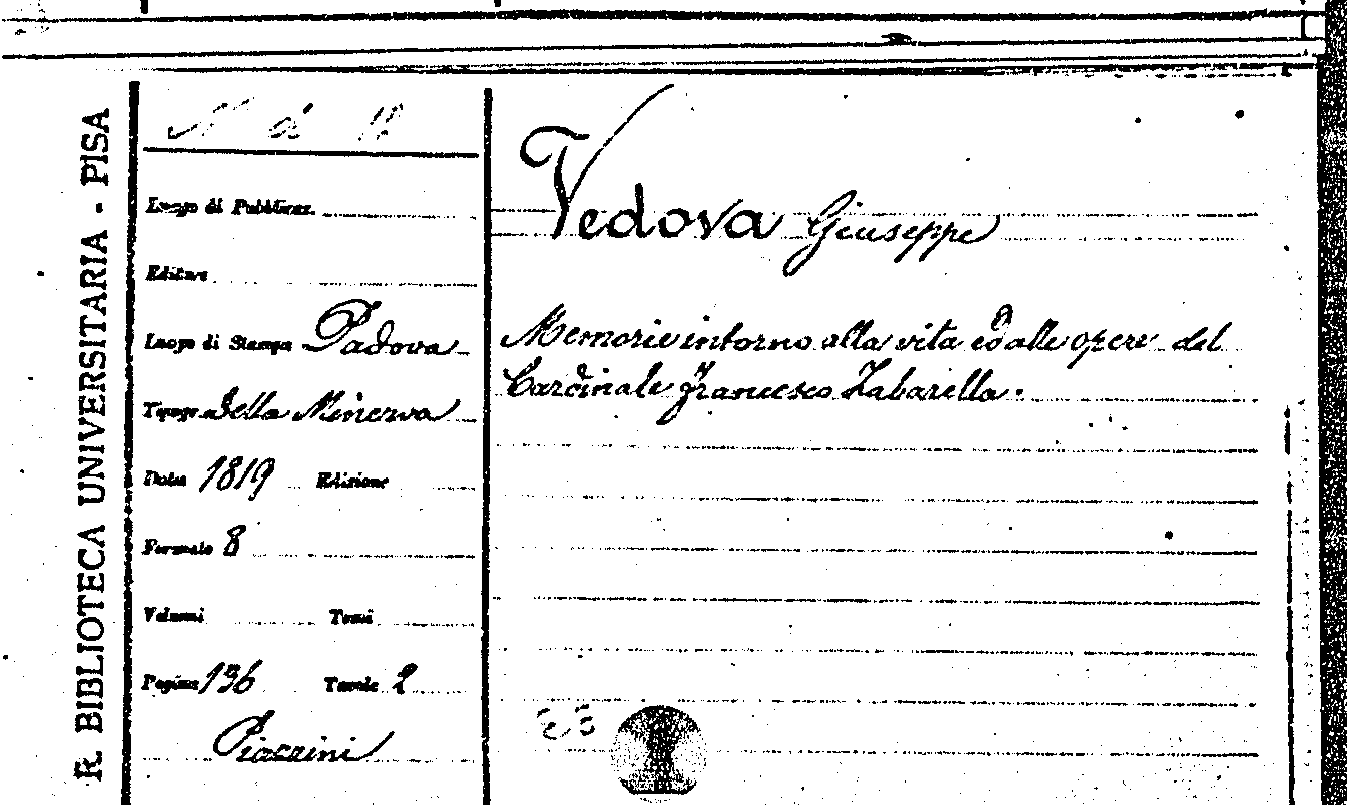 R. BIBLIOTECA UNIVERSITARIA - PISA
N d 12
Luogo di Pubblicaz.
Editore
Luogo di Stampa Padova
Tipogr. della Minerva
Data 1819 Edizione
Formato 8
Volumi Tomi
Pagine 136 Tavole 2
Piaccini
Vedova Giuseppe
Memorie intorno alla vita ed alle opere del
Cardinale Francesco Zabarella.